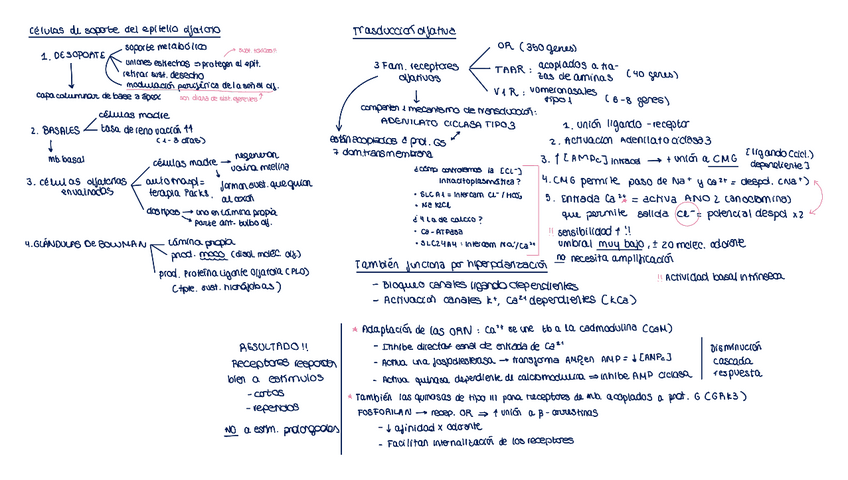 Células de soporte del epitelio olfatorio
1. DE SOPORTE
soporte metabólico
uniones estrechos ⇒ protegen al epit.
retirar sust. desecho
modulación periférica de la señal olf.
capa columnar de base a ápex
2. BASALES
células madre
tasa de renovación ↑↑
mb basal
3. células olfatorias envainadas
células madre
regeneran vaina mielina
autotraspl = terapia Parks.
forman sust. que guían al axón
dos tipos
uno en lámina propia
parte ant. bulbo olf.
4. GLÁNDULAS DE BOWMAN
lámina propia
prod. moco (disol. moléc olf)
prod. Proteína ligante olfatoria (PLO)
(tpte. sust. hidrófobas)
Trasducción olfativa
3 Fam. receptores olfativos
OR (350 genes)
TAAR: acoplados a trazas de aminas (40 genes)
V1R: vomeronasales tipo 1 (6-8 genes)
comparten 1 mecanismo de transducción:
ADENILATO CICLASA TIPO 3
están acoplados a prot. Gs
7 dom transmembrana
¿cómo controlamos la [Cl-] intracitoplasmática?
• SLC A1 = Intercam Cl-/HCO3
• NKCC1
¿Y la de calcio?
• Ca-ATPasa
• SLC24A4: Intercam Na+/Ca2+
1. Unión ligando-receptor
2. Activación Adenilato ciclasa 3
3. ↑[AMPc] intracel → + unión a CMG [ligando (cicl.) dependiente]
4. CMG permite paso de Na+ y Ca2+ = despol. (Na+)
5. Entrada Ca2+ = activa ANO2 (anoctamina)
que permite salida Cl- = potencial despol x2
!! sensibilidad ↑!!
umbral muy bajo, ± 20 moléc. odorante
no necesita amplificación
!! Actividad basal intrínseca
También funciona por hiperpolarización
- Bloqueo canales ligando dependientes
- Activación canales K+, Ca2+ dependientes (KCa)
RESULTADO!!
Receptores responden bien a estímulos
- cortos
- repetidos
NO a estím. prolongados
* Adaptación de las ORN: Ca2+ se une tb a la calmodulina (CaM)
- Inhibe director canal de entrada de Ca2+
- Activa una fosfodiesterasa → transforma AMPc en AMP = ↓[AMPc]
- Activa quinasa dependiente de calciomodulina ⇒ inhibe AMP ciclasa
Disminución cascada respuesta
* También las quinasas de tipo III para receptores de mb. acoplados a prot. G (GRK3)
FOSFORILAN → recep. OR ⇒ ↑ unión a β-arrestinas
- ↓ afinidad x odorante
- Facilitan internalización de los receptores